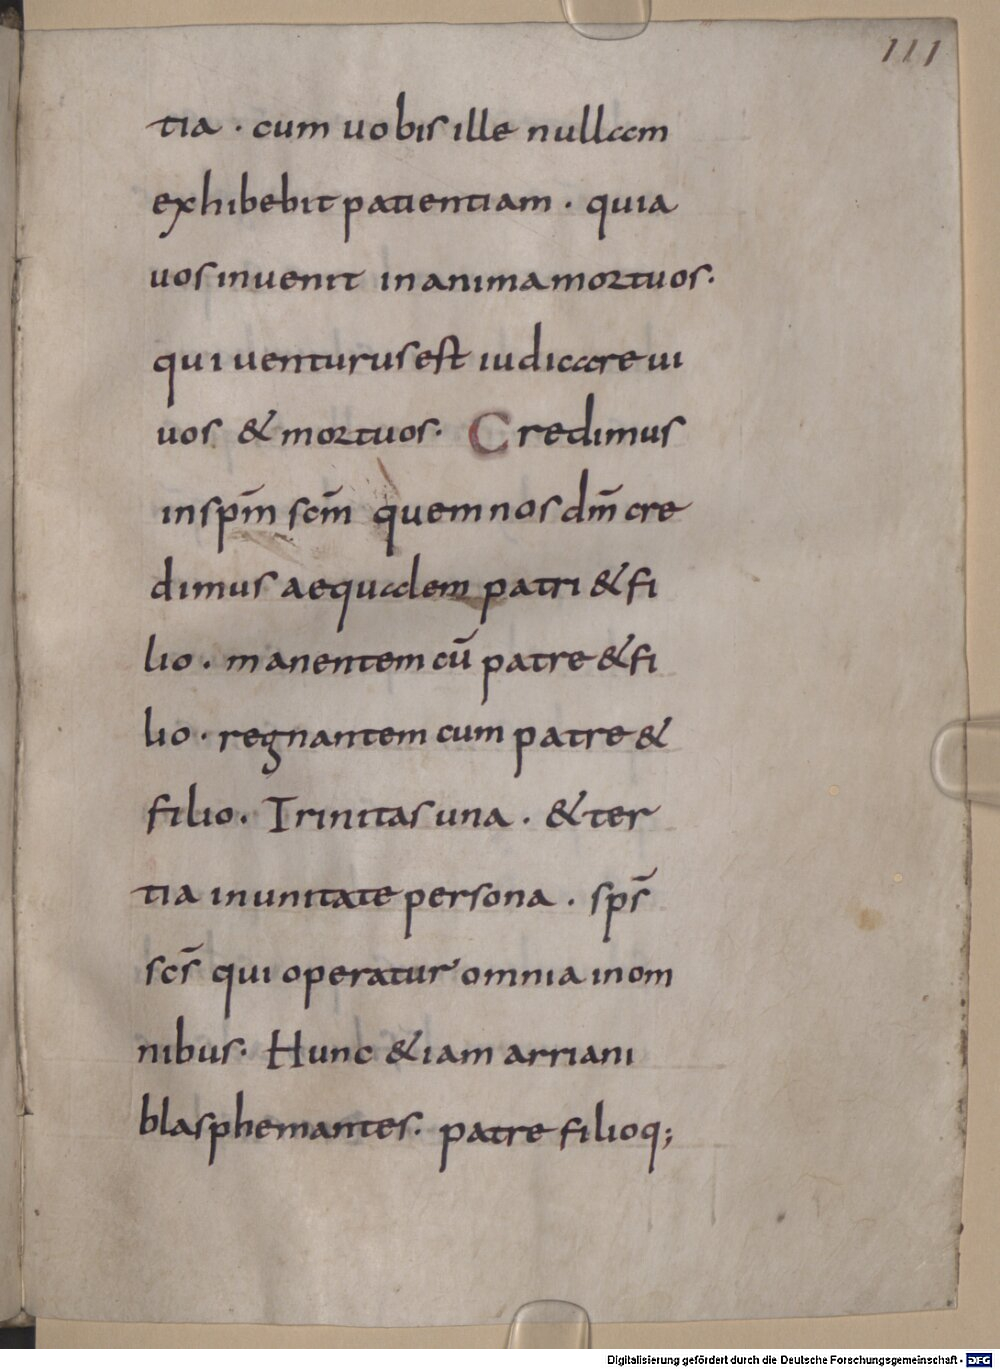 111
tia · cum uobis ille nullam
exhibebit patientiam · quia
uos inuenit in anima mortuos ·
qui uenturus est iudicare ui
uos & mortuos · Credimus
in sp̄m sc̄m quem nos dm̄ cre
dimus aequalem patri & fi
lio · manentem cū patre & fi
lio · regnantem cum patre &
filio · Trinitas una · & ter
tia in unitate persona · sps̄
scs̄ qui operatur omnia in om
nibus · Hunc &iam arriani
blasphemantes · patre filioq;
Digitalisierung gefördert durch die Deutsche Forschungsgemeinschaft - DFG